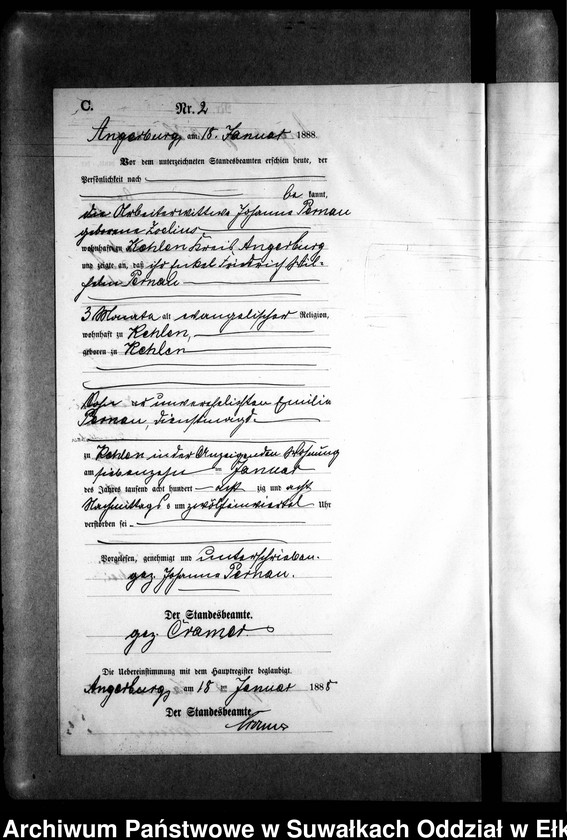 C.
Nr. 2
Angerburg, am 18. Januar 1888.
Vor dem unterzeichneten Standesbeamten erschien heute, der
Persönlichkeit nach
be kannt,
die Arbeiterwittwe Johanna Pernau
geborene
wohnhaft zu Kehlen Kreis Angerburg
und zeigte an, daß ihr Enkel Friedrich Wil-
helm Pernau
3 Monate alt evangelischer Religion,
wohnhaft zu Kehlen,
geboren zu Kehlen
Sohn der unverehelichten Emilie
Pernau, Dienstmagd.
zu Kehlen in der Anzeigenden Wohnung
am siebenzehn ten Januar
des Jahres tausend acht hundert acht zig und acht
Nachmittags um zwölfeinviertel Uhr
verstorben sei.
Vorgelesen, genehmigt und unterschrieben.
gez. Johanna Pernau.
Der Standesbeamte.
gez. Cramer
Die Uebereinstimmung mit dem Hauptregister beglaubigt.
Angerburg, am 18 ten Januar 1888
Der Standesbeamte
Cramer
Archiwum Państwowe w Suwałkach Oddział w Ełk